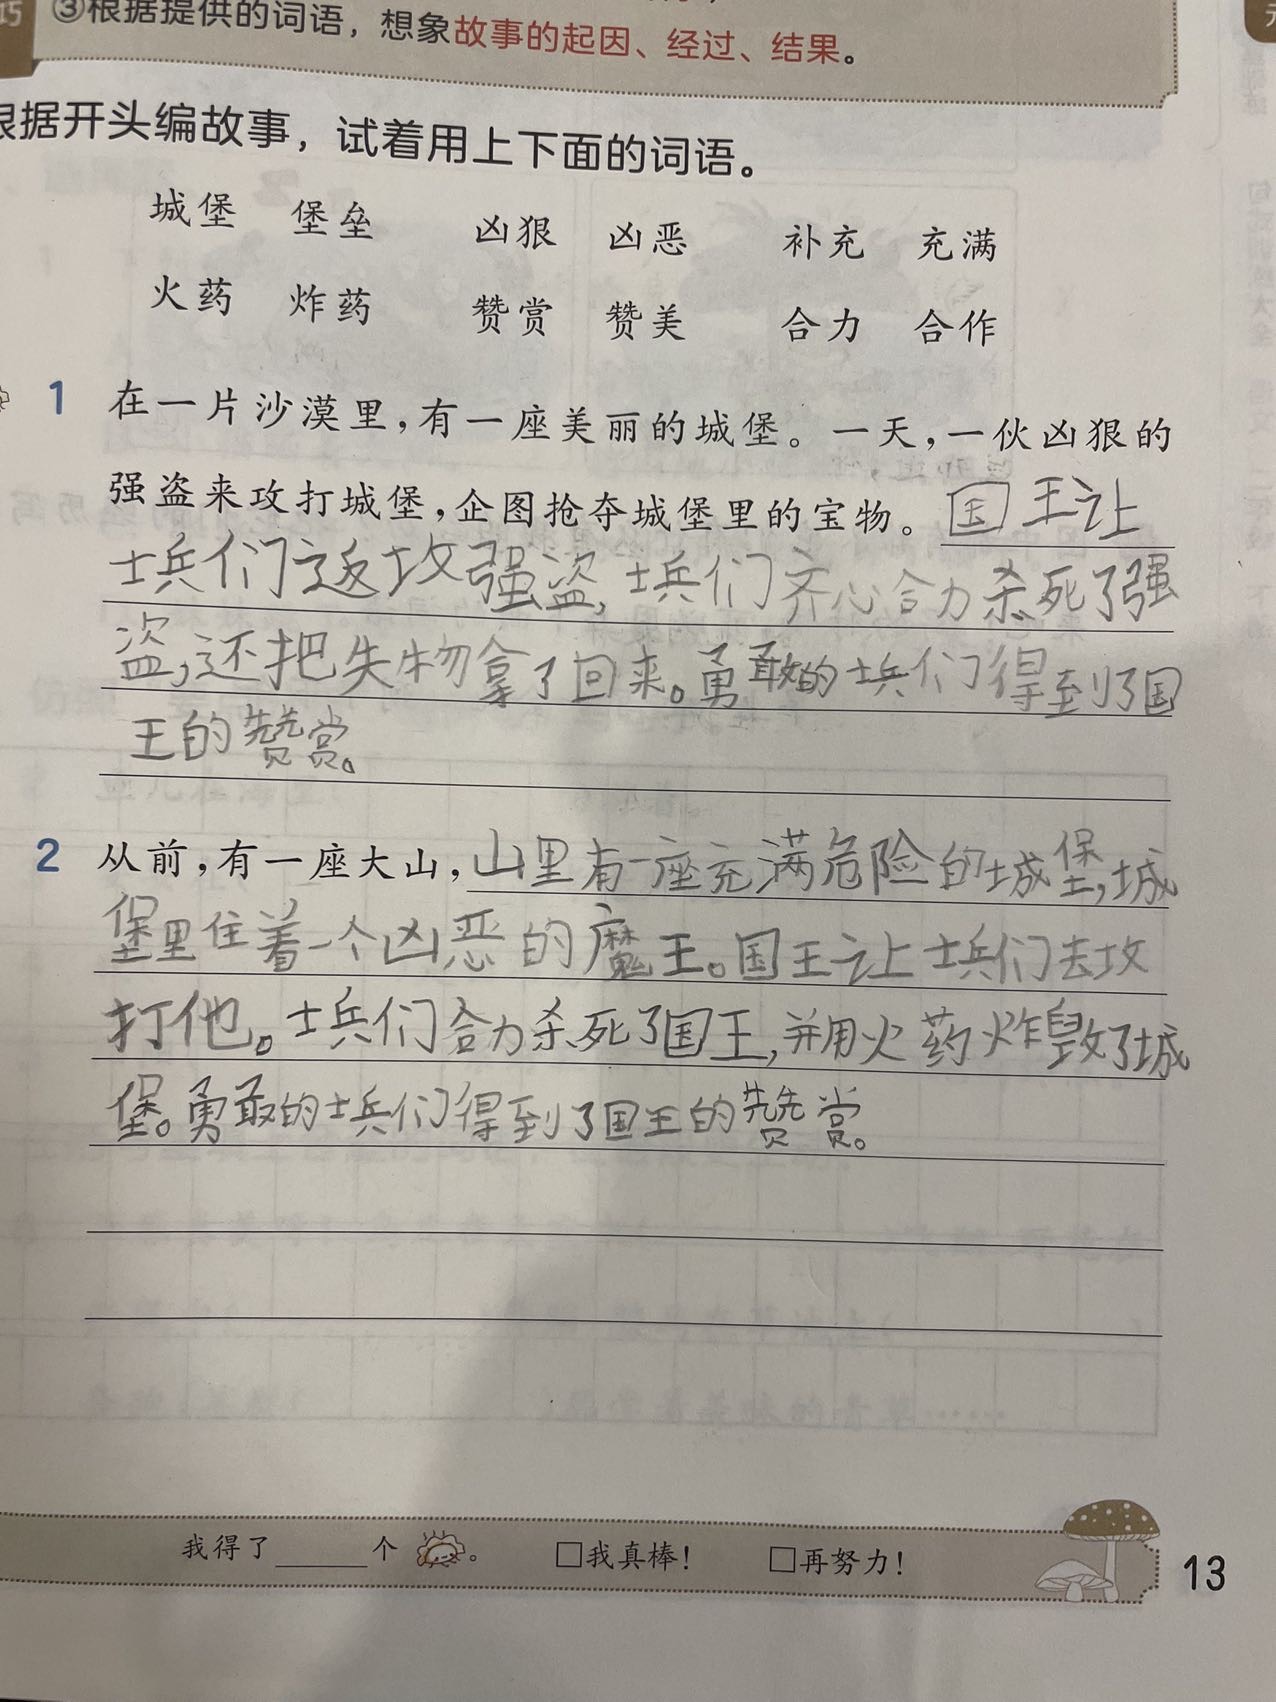 巧
③根据提供的词语，想象故事的起因、经过、结果。
根据开头编故事，试着用上下面的词语。
城堡 堡垒 凶狠 凶恶 补充 充满
火药 炸药 赞赏 赞美 合力 合作
1 在一片沙漠里，有一座美丽的城堡。一天，一伙凶狠的
强盗来攻打城堡，企图抢夺城堡里的宝物。国王让
士兵们返攻强盗，士兵们齐心合力杀死了强
盗，还把失物拿了回来。勇敢的士兵们得到了国
王的赞赏。
2 从前，有一座大山，山里有一座充满危险的城堡，城
堡里住着一个凶恶的魔王。国王让士兵们去攻
打他。士兵们合力杀死了国王，并用火药炸毁了城
堡。勇敢的士兵们得到了国王的赞赏。
我得了______个。 □我真棒！ □再努力！
13